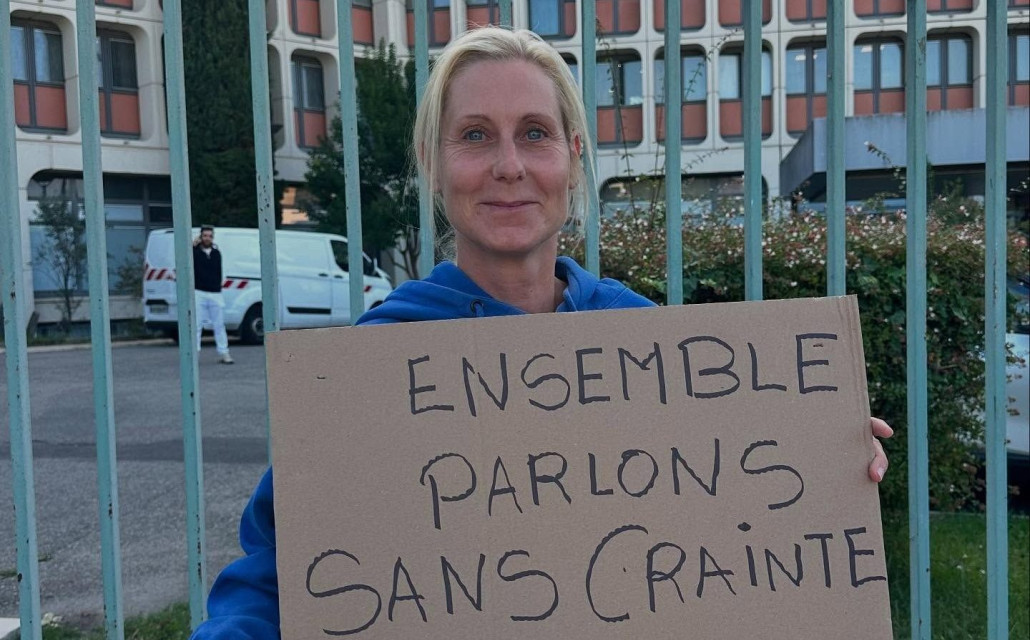 ENSEMBLE
PARLONS
SANS CRAiNTE